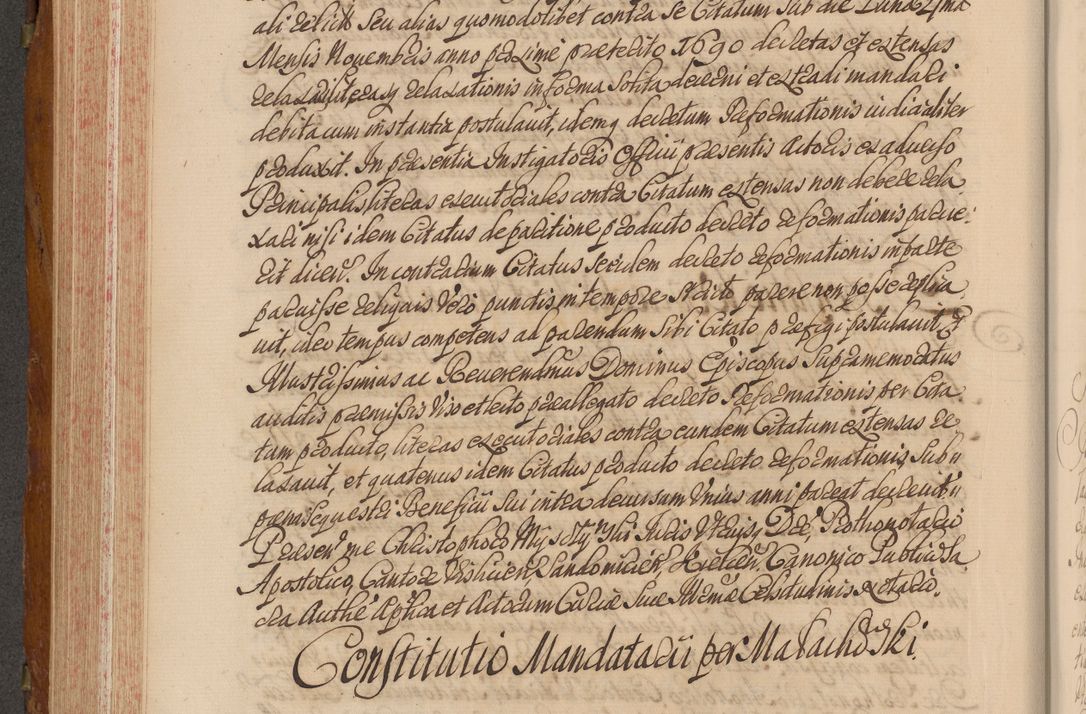 ali Relicti seu alias quomodolibet contra se Citatum sub die Lunae 27ma
Mensis Novembris anno proxime praeterito 1690 decretas et extensas
relaxari literasq relaxationis in forma solita decerni et extradi mandari
debita cum instantia postulavit, idemq decretum Reformationis iudicialiter
produxit. In praesentia Instigatoris Officii praesentis Actoris ex adverso
Principalis literas executoriales contra Citatum extensas non debere rela
xari nisi idem Citatus de paritione producto decreto reformationis pa
rit dicen. In contrarium Citatus se eidem decreto reformationis in parte
paruisse reliquis vero punctis, in tempore Arcto parere non posse replica
vit, ideo tempus competens ad parendum sibi Citato praefigi postulavit, Et
Illustrissimus ac Reverendmus Dominus Episcopus Supramemoratus
auditis praemissis viso et lecto praeallegato decreto Reformationis per Cita
tum producto, literas executoriales contra eundem Citatum extensas re
laxavit, et quatenus idem Citatus producto decreto reformationis, sub
paena sequestri Beneficii sui intra decursum Unius anni pareat decrevit
Praesen me Christophoro Juris Utriusq Dre, Prothonotario
Apostolico, Cantore Vislicien, Sandomirien, Kielcen Canonico Publico Sa
cra Authe Aplica et Actorum Curiae suae Illmae Celsitudinis Notario.
Constitutio Mandatarii per Malachowski.